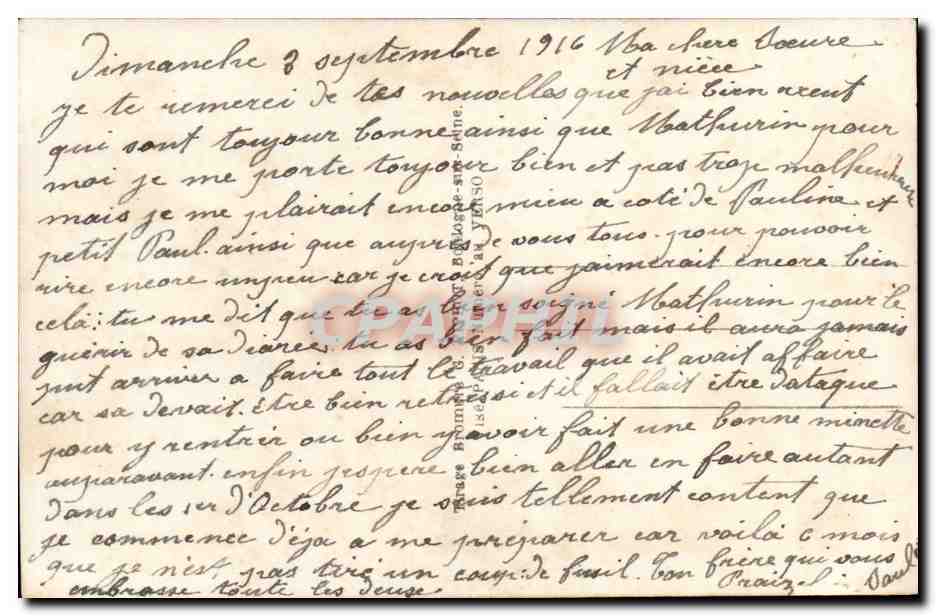 Dimanche 3 septembre 1916 Ma chere Sœure
et nièce
je te remerci de tes nouvelles que j'ai bien reçut
qui sont toujour bonne ainsi que Mathurin pour
moi je me porte toujour bien et pas trop malheureux
mais je me plairait encore mieu a coté de Pauline et
petit Paul. ainsi que aupres de vous tous. pour pouvoir
rire encore un peu car je croit que j'aimerait encore bien
cela; tu me dit que tu as bien soigné Mathurin pour le
guérir de sa diarée, tu as bien fait mais il aura jamais
put arriver a faire tout le travail que il avait affaire
car sa devait être bien retressi et il fallait être dataque
pour y rentrer ou bien y avoir fait une bonne minette
auparavant. enfin j'espere bien aller en faire autant
dans les 1er d'Octobre je suis tellement content que
je commence déja a me préparer car voilà 6 mois
que je n'est pas tiré un coup de fusil. Ton frère qui vous
embrasse toute les deuse Paul
Tirage Bromure G. Boulogne-sur-Seine.
au VERSO
CPAPHIL